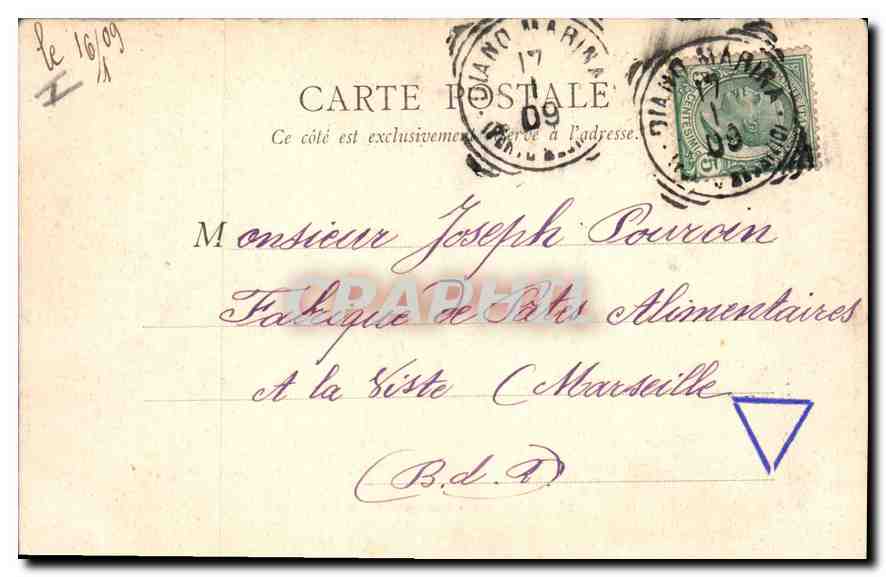 le 16/09
1
CARTE POSTALE
Ce côté est exclusivement réservé à l'adresse.
DIANO MARINA
17
1
09
DIANO MARINA
17
1
09
CENTESIMI 5
Monsieur Joseph Pourcin
CPAPHIL
Fabrique de Pates Alimentaires
A la Viste (Marseille
(B. d. R)